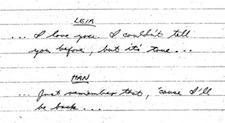 LEIA
... I love you. I couldn't tell
you before, but it's true...
HAN
... Just remember that, 'cause I'll
be back...